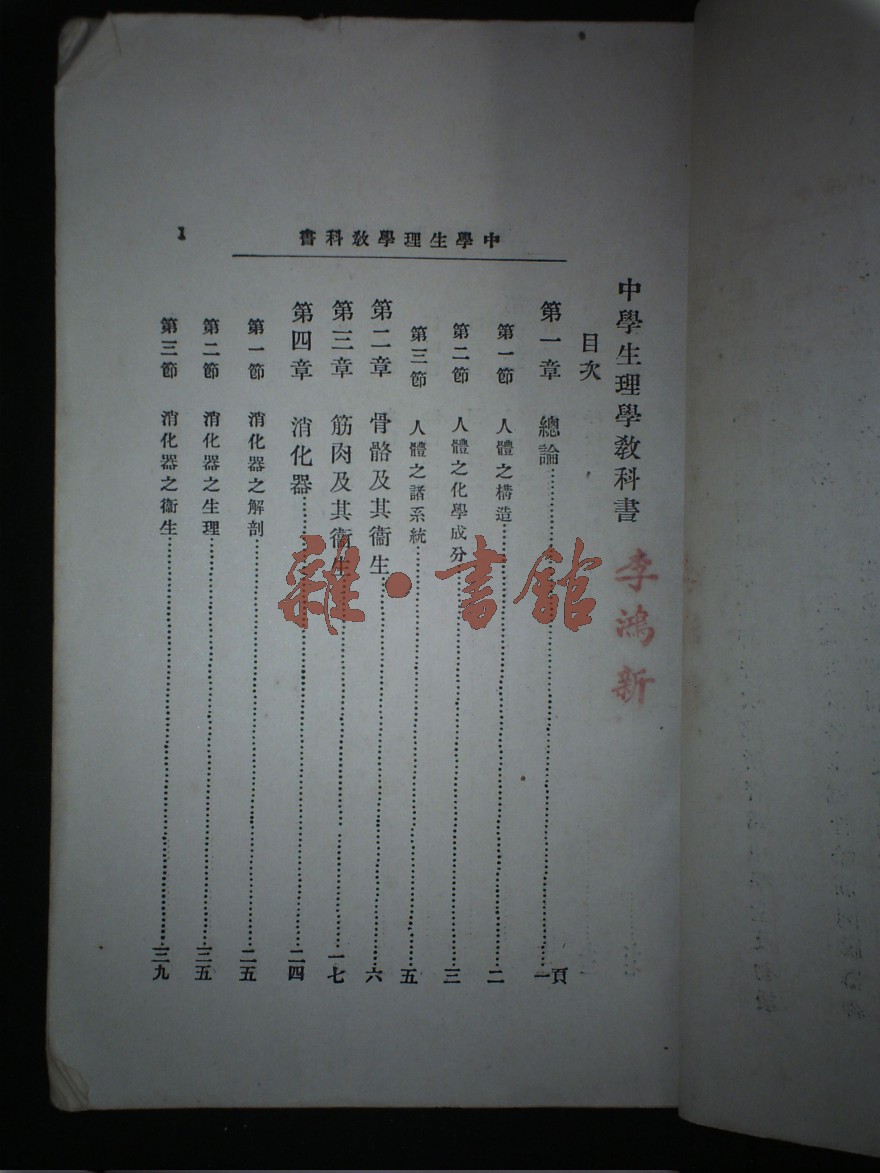 中學生理學敎科書
1
中學生理學敎科書
李鴻新
目次
第一章 總論……一頁
第一節 人體之構造……二
第二節 人體之化學成分……三
第三節 人體之諸系統……五
第二章 骨骼及其衞生……六
第三章 筋肉及其衞生……一七
第四章 消化器……二四
第一節 消化器之解剖……二五
第二節 消化器之生理……三五
第三節 消化器之衞生……三九
雜·書館